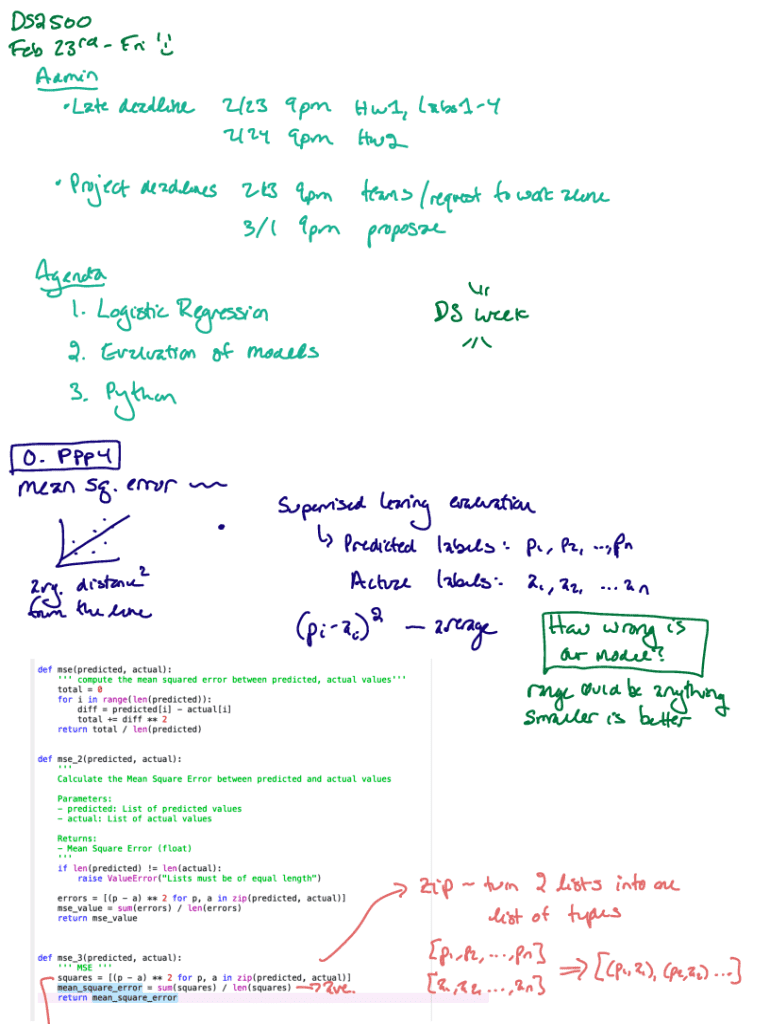 DS2500
Feb 23rd - Fri
Admin
• Late deadline 2/23 9pm HW1, Labs 1-4
2/24 9pm HW2
• Project deadlines 2/23 9pm teams/request to work alone
3/1 9pm proposal
Agenda
1. Logistic Regression
DS week
2. Evaluation of models
3. Python
0. PPP4
mean sq. error
Supervised learning evaluation
↳ Predicted labels: p1, p2, ..., pn
avg. distance²
from the line
Actual labels: a1, a2, ... an
(pi - ai)² — average
How wrong is
our model?
range could be anything
smaller is better
def mse(predicted, actual):
''' compute the mean squared error between predicted, actual values'''
total = 0
for i in range(len(predicted)):
diff = predicted[i] - actual[i]
total += diff ** 2
return total / len(predicted)
def mse_2(predicted, actual):
'''
Calculate the Mean Square Error between predicted and actual values
Parameters:
- predicted: List of predicted values
- actual: List of actual values
Returns:
- Mean Square Error (float)
'''
if len(predicted) != len(actual):
raise ValueError("Lists must be of equal length")
errors = [(p - a) ** 2 for p, a in zip(predicted, actual)]
mse_value = sum(errors) / len(errors)
return mse_value
zip - turn 2 lists into one
list of types
def mse_3(predicted, actual):
''' MSE '''
squares = [(p - a) ** 2 for p, a in zip(predicted, actual)]
mean_square_error = sum(squares) / len(squares) → ave.
return mean_square_error
[p1, p2, ..., pn]
[a1, a2, ..., an] ⇒ [(p1, a1), (p2, a2) ...]